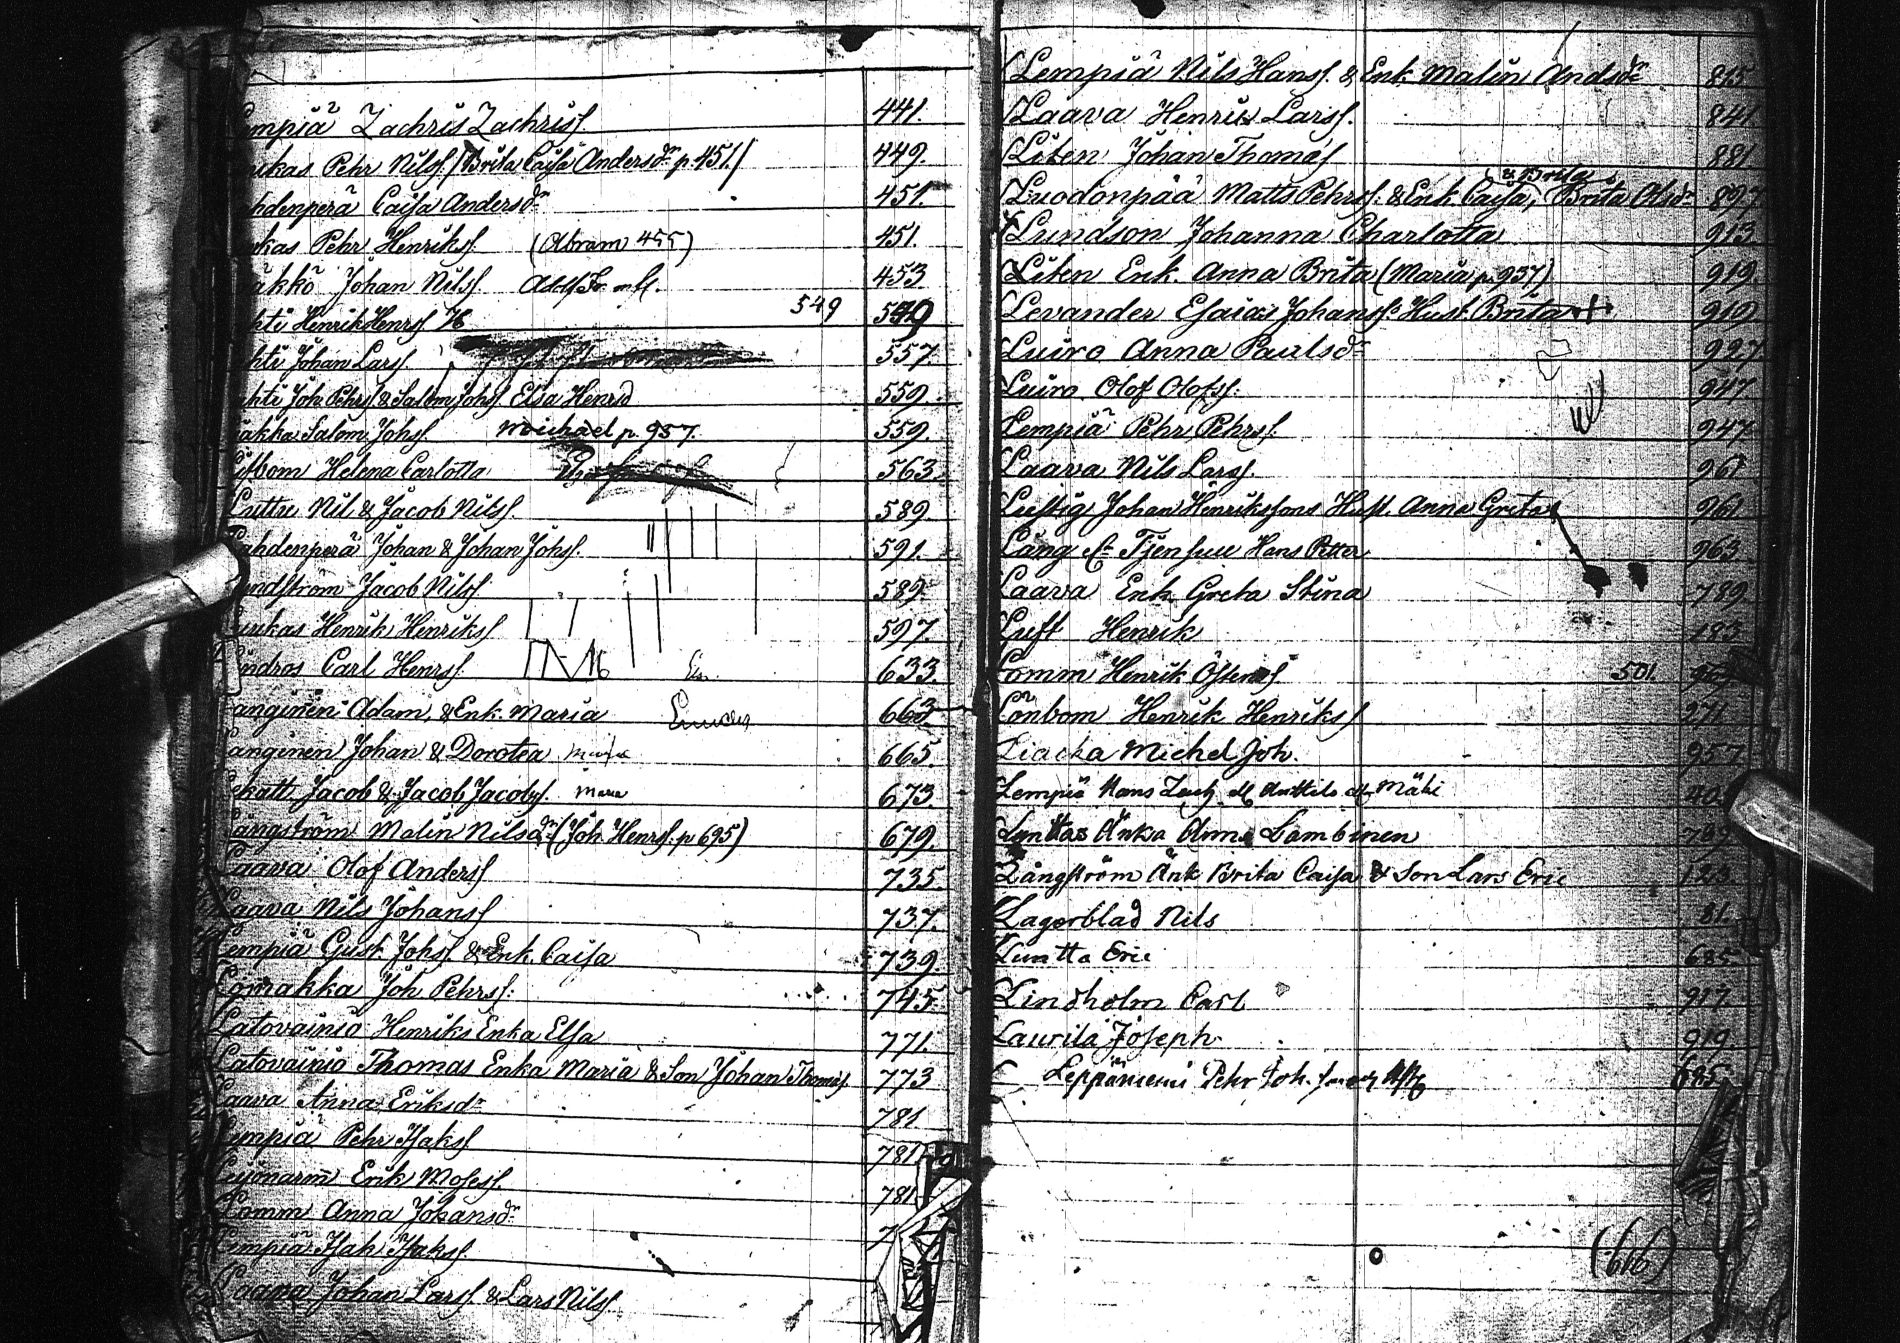 empiä Zachris Zachrisf. 441.
ukas Pehr Nilsf. (Brita Caisa Andersdr p. 451.) 449.
hdenperä Caisa Andersdr 451.
ukas Pehr Henriksf. (Abram 455) 451.
äkkö Johan Nilsf. 453
hti Henrik Henrsf. 549 549
hti Johan Larsf. 557.
hti Joh Pehrsf & Salom Johsf Elsa Henrsd 559.
äkka Salom. Johsf. Michael p. 957. 559.
Lifbom Helena Carlotta 563.
Luttu Nil & Jacob Nilsf. 589.
Lahdenperä Johan & Johan Johsf. 591.
undström Jacob Nilsf. 589.
urikas Henrik Henriksf 597.
indros Carl Henrsf. 633.
anginen Adam. & Enk. Maria 663.
anginen Johan & Dorotea 665.
ekatt Jacob & Jacob Jacobsf. Maria 673
Långström Malin Nilsdr (Joh. Henrsf. p 695) 679.
Laava Olof Andersf 735.
Laava Nils Johansf 737.
Lempiä Gust. Johsf. & Enk. Caisa 739.
Lomakka Joh Pehrsf. 745.
Latovainio Henriks Enka Elsa 771.
Latovainio Thomas Enka Maria & Son Johan Thomasf. 773
Laava Anna Eriksdr 781
Lempiä Pehr Isaksf 781
Erik Mosesf. 781.
Lomm Anna Johansdr
Lempiä Isak Isaksf.
Laava Johan Larsf. & Lars Nilsf.
Lempiä Nils Hansf. & Enk Malin Andsdr 815
Laava Henrik Larsf. 841
Liten Johan Thomasf 881
Luodonpää Matts Pehrsf. & Enk. Caisa, (& Brita) Brita Olsdr 897
Lundson Johanna Charlotta 913
Liten Enk. Anna Brita (Maria p. 937) 919.
Levander Esaias Johansfs Hust. Brita + 919
Luiro Anna Paulsdr 927
Luiro Olof Olofsf. 947
Lempiä Pehr Pehrsf. 947
Laava Nils Larsf. 961
Lustig Johan Henrikssons Hust. Anna Greta 961
Lång Hans Petter 963
Laava Enk Greta Stina 789
Luft Henrik 183
Lomm Henrik 501.
Lönbom Henrik Henriksf 271
Liacka Michel Joh. 957
Lempiä Hans Zach Anttila Mäki
Luttas Änka Anna Lambinen 739
Långström Änk Brita Caisa & Son Lars Eric 123
Lagerblad Nils 81.
Luutta Eric 685
Lindholm Carl 917
Laurila Joseph 919
Leppäniemi Pehr Joh. 685
(616)